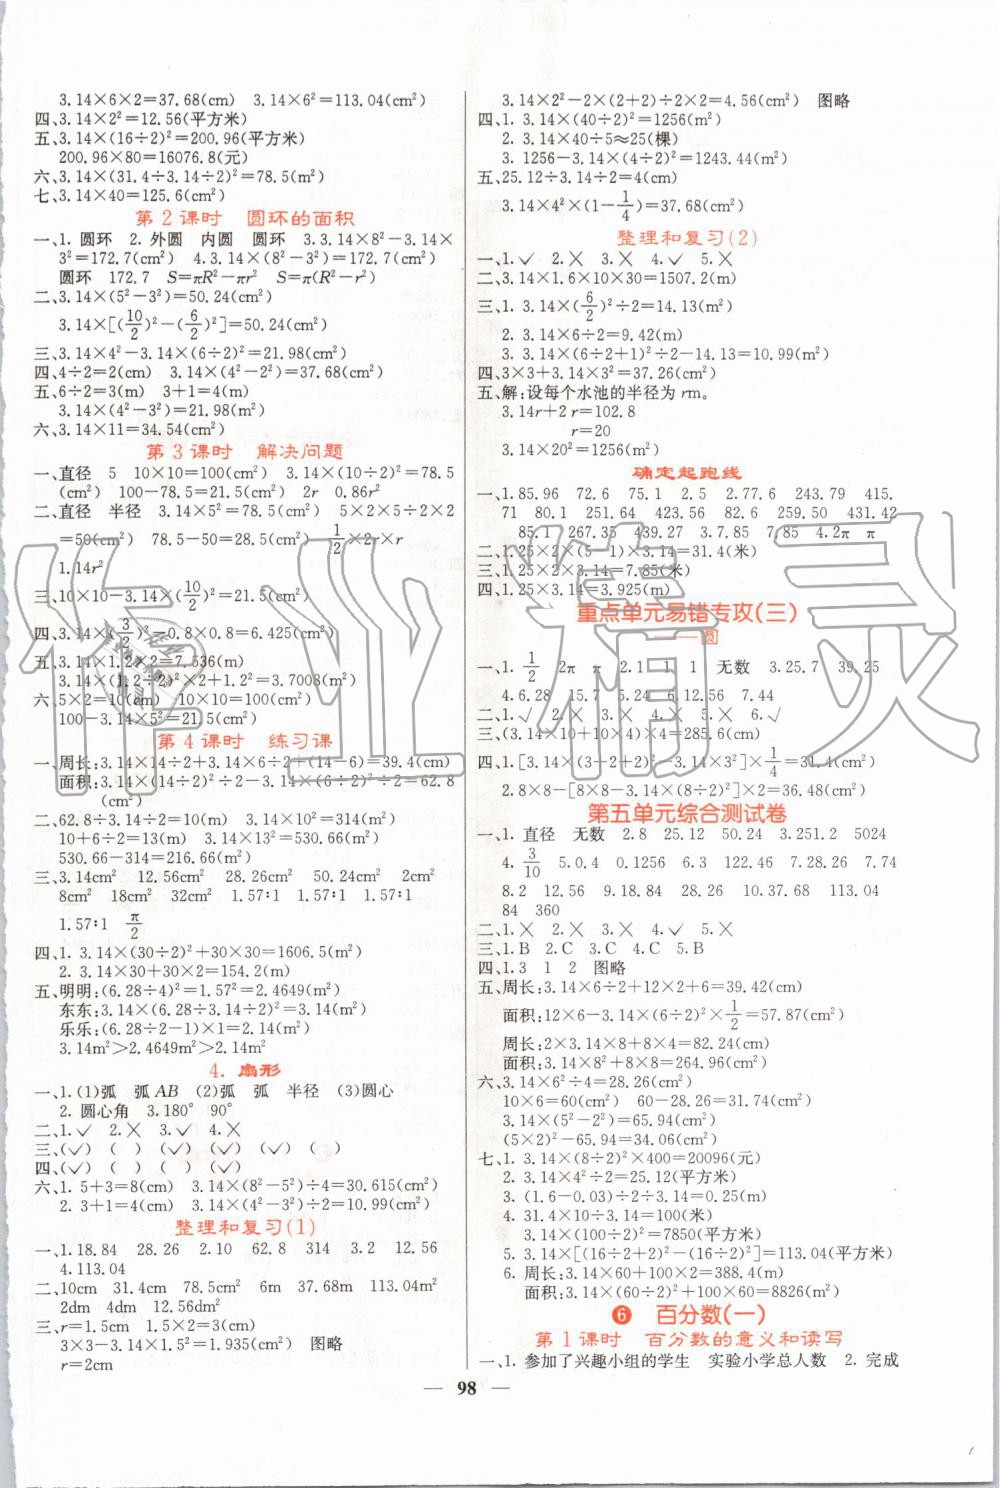 3.14×6×2=37.68(cm) 3.14×6²=113.04(cm²)
四、3.14×2²=12.56(平方米)
五、3.14×(16÷2)²=200.96(平方米)
200.96×80=16076.8(元)
六、3.14×(31.4÷3.14÷2)²=78.5(cm²)
七、3.14×40=125.6(cm²)
第2课时 圆环的面积
一、1. 圆环 2. 外圆 内圆 圆环 3. 3.14×8²-3.14×
3²=172.7(cm²) 4. 3.14×(8²-3²)=172.7(cm²)
圆环 172.7 S=πR²-πr² S=π(R²-r²)
二、3.14×(5²-3²)=50.24(cm²)
3.14×[(10/2)²-(6/2)²]=50.24(cm²)
三、3.14×4²-3.14×(6÷2)²=21.98(cm²)
四、4÷2=2(cm) 3.14×(4²-2²)=37.68(cm²)
五、6÷2=3(m) 3+1=4(m)
3.14×(4²-3²)=21.98(m²)
六、3.14×11=34.54(cm²)
第3课时 解决问题
一、直径 5 10×10=100(cm²) 3.14×(10÷2)²=78.5
(cm²) 100-78.5=21.5(cm²) 2r 0.86r²
二、直径 半径 3.14×5²=78.5(cm²) 5×2×5÷2×2
=50(cm²) 78.5-50=28.5(cm²) 1/2×2r×r
1.14r²
三、10×10-3.14×(10/2)²=21.5(cm²)
四、3.14×(3/2)²-0.8×0.8=6.425(m²)
五、3.14×1.2×2=7.536(m)
3.14×(1.2÷2)²×2+1.2²=3.7008(m²)
六、5×2=10(cm) 10×10=100(cm²)
100-3.14×5²=21.5(cm²)
第4课时 练习课
一、周长:3.14×14÷2+3.14×6÷2+(14-6)=39.4(cm)
面积:3.14×(14÷2)²÷2-3.14×(6÷2)²÷2=62.8
(cm²)
二、62.8÷3.14÷2=10(m) 3.14×10²=314(m²)
10+6÷2=13(m) 3.14×13²=530.66(m²)
530.66-314=216.66(m²)
三、3.14cm² 12.56cm² 28.26cm² 50.24cm² 2cm²
8cm² 18cm² 32cm² 1.57∶1 1.57∶1 1.57∶1
1.57∶1 π/2
四、1. 3.14×(30÷2)²+30×30=1606.5(m²)
2. 3.14×30+30×2=154.2(m)
五、明明:(6.28÷4)²=1.57²=2.4649(m²)
东东:3.14×(6.28÷3.14÷2)²=3.14(m²)
乐乐:(6.28÷2-1)×1=2.14(m²)
3.14m²>2.4649m²>2.14m²
4. 扇形
一、1. (1)弧 弧AB (2)弧 弧 半径 (3)圆心
2. 圆心角 3. 180° 90°
二、1.√ 2.× 3.√ 4.×
三、(√) ( ) (√) (√) (√) ( )
四、(√) ( ) ( ) (√)
六、1. 5+3=8(cm) 3.14×(8²-5²)÷4=30.615(cm²)
2. 3+1=4(cm) 3.14×(4²-3²)÷2=10.99(cm²)
整理和复习(1)
一、1. 18.84 28.26 2. 10 62.8 314 3. 2 12.56
4. 113.04
二、10cm 31.4cm 78.5cm² 6m 37.68m 113.04m²
2dm 4dm 12.56dm²
三、r=1.5cm r=1.5cm
3×3-3.14×1.5²=1.935(cm²) 图略
r=2cm
3.14×2²-2×(2+2)÷2×2=4.56(cm²) 图略
四、1. 3.14×(40÷2)²=1256(m²)
2. 3.14×40÷5≈25(棵)
3. 1256-3.14×(4÷2)²=1243.44(m²)
五、25.12÷3.14÷2=4(cm)
3.14×4²×(1-1/4)=37.68(cm²)
整理和复习(2)
一、1.√ 2.× 3.× 4.√ 5.×
二、3.14×1.6×10×30=1507.2(m)
三、1. 3.14×(6/2)²÷2=14.13(m²)
2. 3.14×6÷2=9.42(m)
3. 3.14×(6÷2+1)²÷2-14.13=10.99(m²)
四、3×3+3.14×3²=37.26(cm²)
五、解:设每个水池的半径为rm。
3.14r+2r=102.8
r=20
3.14×20²=1256(m²)
确定起跑线
一、1. 85.96 72.6 75.1 2.5 2. 77.6 243.79 415.
71 80.1 251.64 423.56 82.6 259.49 431.42
85.1 267.35 439.27 3. 7.85 85 4. 2π π
二、1.25×2×(5-1)×3.14=31.4(米)
三、1.25×2×3.14=7.85(米)
四、1.25×3.14=3.925(m)
重点单元易错专攻(三)
——圆
一、1. 1/2 2π π 2. 1 1 1 无数 3. 25.7 39.25
4. 6.28 15.7 5. 24 6. 12.56 7. 44
二、1.√ 2.× 3.× 4.× 5.× 6.√
三、(3.14×10+10×4)×4=285.6(cm)
四、1. [3.14×(3+2+2)²-3.14×3²]×1/4=31.4(cm²)
2. 8×8-[8×8-3.14×(8÷2)²]×2=36.48(cm²)
第五单元综合测试卷
一、1. 直径 无数 2. 8 25.12 50.24 3. 251.2 5024
4. 3/10 5. 0.4 0.1256 6. 3 122.46 7. 28.26 7.74
8. 2 12.56 9. 18.84 28.26 10. 37.68 113.04
84 360
二、1.× 2.× 3.× 4.√ 5.×
三、1. B 2. C 3. C 4. C 5. B
四、1. 3 1 2 图略
五、周长:3.14×6÷2+12×2+6=39.42(cm)
面积:12×6-3.14×(6÷2)²×1/2=57.87(cm²)
周长:2×3.14×8+8×4=82.24(cm)
面积:3.14×8²+8×8=264.96(cm²)
六、3.14×6²÷4=28.26(cm²)
10×6=60(cm²) 60-28.26=31.74(cm²)
3.14×(5²-2²)=65.94(cm²)
(5×2)²-65.94=34.06(cm²)
七、1. 3.14×(8÷2)²×400=20096(元)
2. 3.14×4²÷2=25.12(平方米)
3. (1.6-0.03)÷2÷3.14=0.25(米)
4. 31.4×10÷3.14=100(米)
3.14×(100÷2)²=7850(平方米)
5. 3.14×[(16÷2+2)²-(16÷2)²]=113.04(平方米)
6. 周长:3.14×60+100×2=388.4(m)
面积:3.14×(60÷2)²+100×60=8826(m²)
6 百分数(一)
第1课时 百分数的意义和读写
一、1. 参加了兴趣小组的学生 实验小学总人数 2. 完成
— 98 —
作业精灵